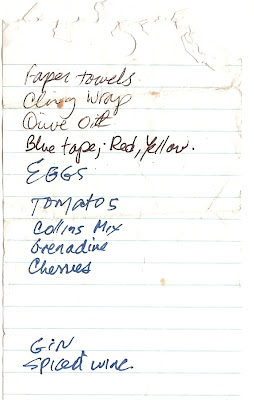 Paper towels
Cling wrap
Olive Oil
Blue tape; Red, Yellow.
EGGS
TOMATOS
Collins Mix
Grenadine
Cherries
GIN
Spiced wine.